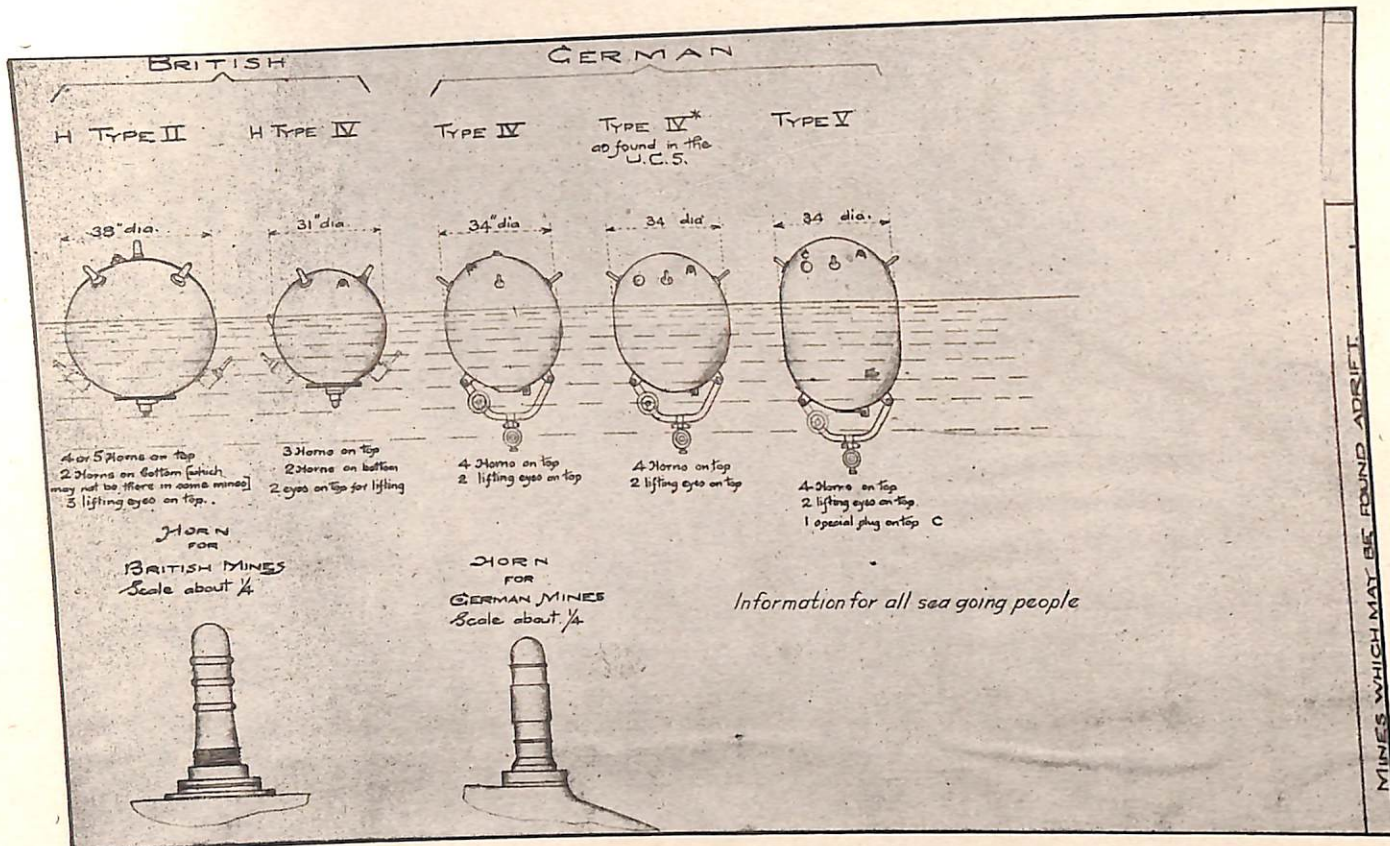 BRITISH
GERMAN
H TYPE II
H TYPE IV
TYPE IV
TYPE IV*
as found in the
U.C.5.
TYPE V
38" dia.
31" dia
34" dia
34 dia
34 dia.
C
4 or 5 Horns on top
2 Horns on bottom [which
may not be there in some mines]
3 lifting eyes on top..
3 Horns on top
2 Horns on bottom
2 eyes on top for lifting
4 Horns on top
2 lifting eyes on top
4 Horns on top
2 lifting eyes on top
4 Horns on top
2 lifting eyes on top.
1 special plug on top C
HORN
FOR
BRITISH MINES
Scale about 1/4
HORN
FOR
GERMAN MINES
Scale about 1/4
Information for all sea going people
MINES WHICH MAY BE FOUND ADRIFT.